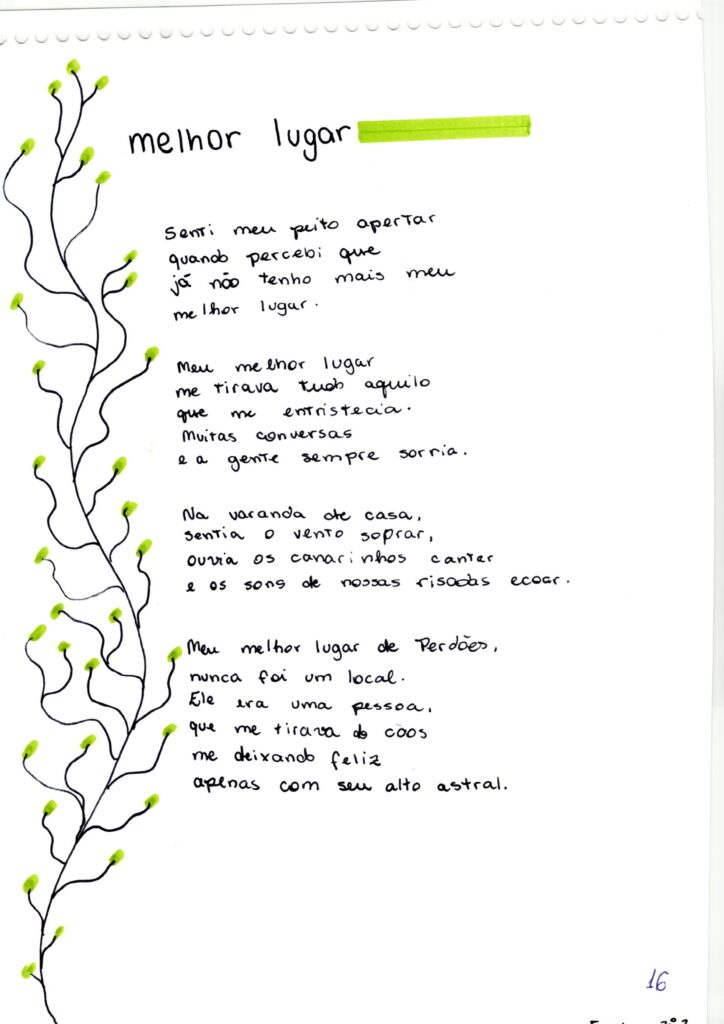 melhor lugar
Senti meu peito apertar
quando percebi que
já não tenho mais meu
melhor lugar.
Meu melhor lugar
me tirava tudo aquilo
que me entristecia.
Muitas conversas
e a gente sempre sorria.
Na varanda de casa,
sentia o vento soprar,
ouvia os canarinhos canter
e os sons de nossas risadas ecoar.
Meu melhor lugar de Perdões,
nunca foi um local.
Ele era uma pessoa,
que me tirava do caos
me deixando feliz
apenas com seu alto astral.
16